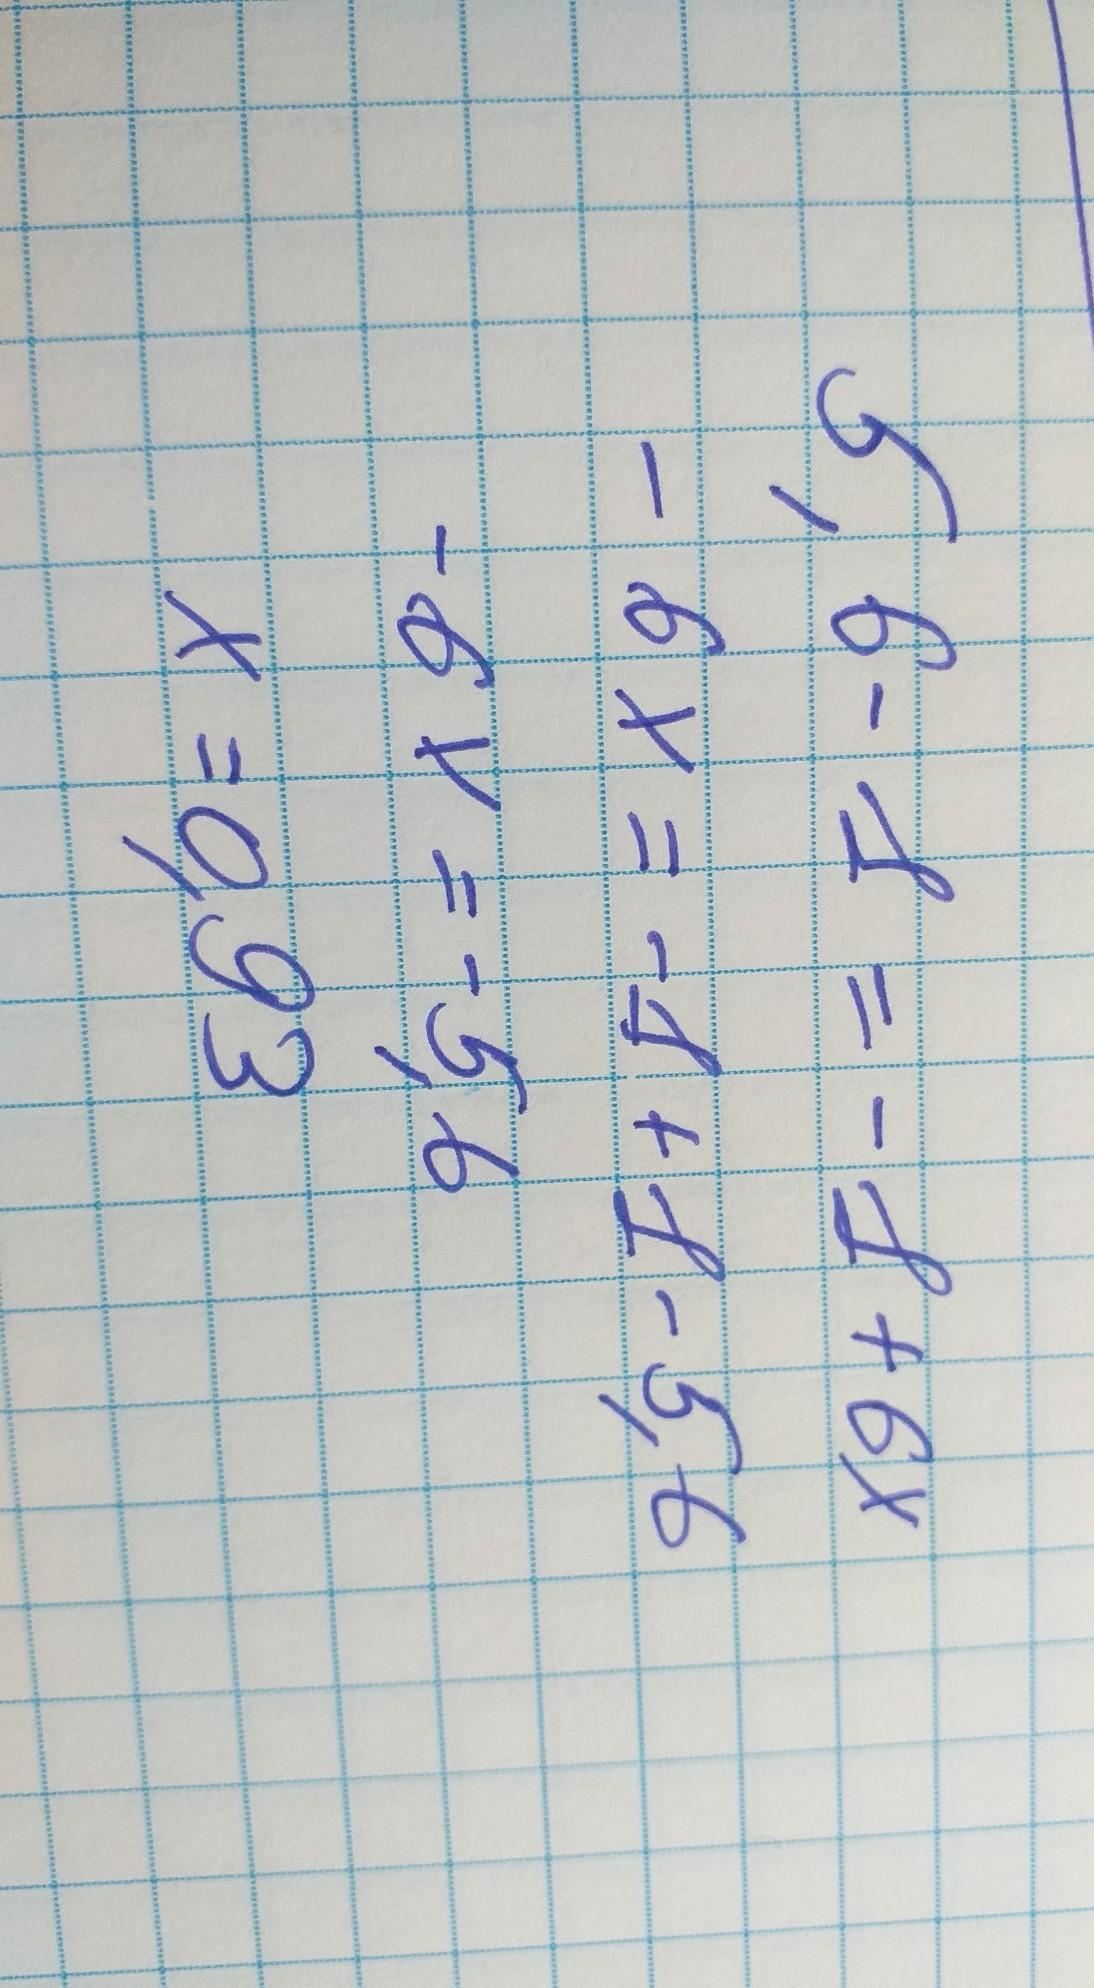 5,6 - 7 = - 7 + 6x
- 6x = - 7 + 7 - 5,6
- 6x = - 5,6
x = 0,93